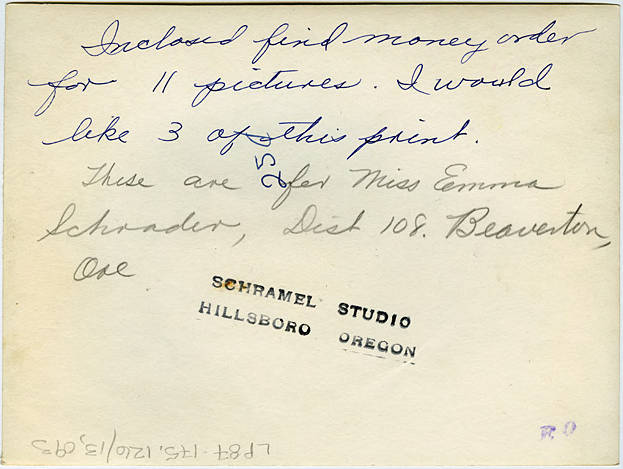 Inclosed find money order
for 11 pictures. I would
like 3 of this print.
25¢
These are for Miss Emma
Schrader, Dist 108. Beaverton,
Ore.
SCHRAMEL STUDIO
HILLSBORO OREGON
LP87-175.126/13,093